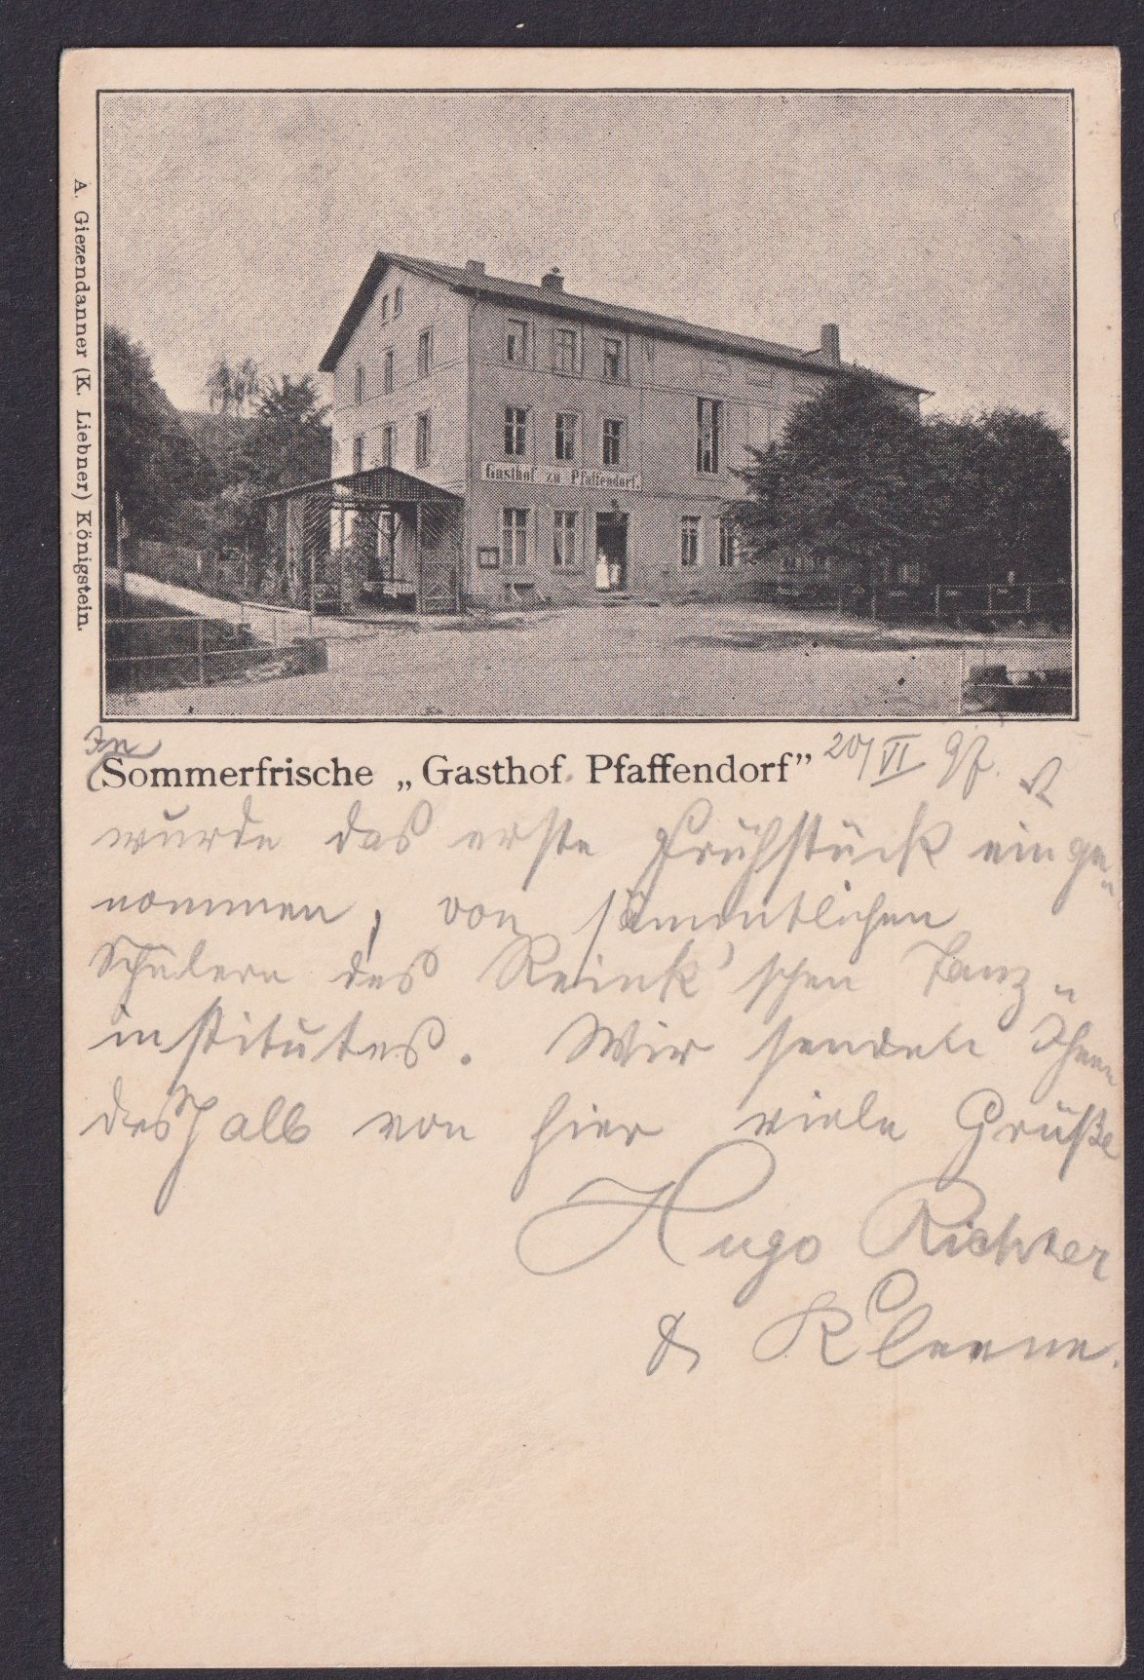 A. Giezendanner (K. Liebner) Königstein.
Gasthof zu Pfaffendorf.
In
Sommerfrische „Gasthof Pfaffendorf” 20/VI 97.
wurde das erste Frühstück einge-
nommen, von sämmtlichen
Schülern des Reink'schen Tanz-
institutes. Wir senden Ihnen
deshalb von hier viele Grüße
Hugo Richter
& Kleene.